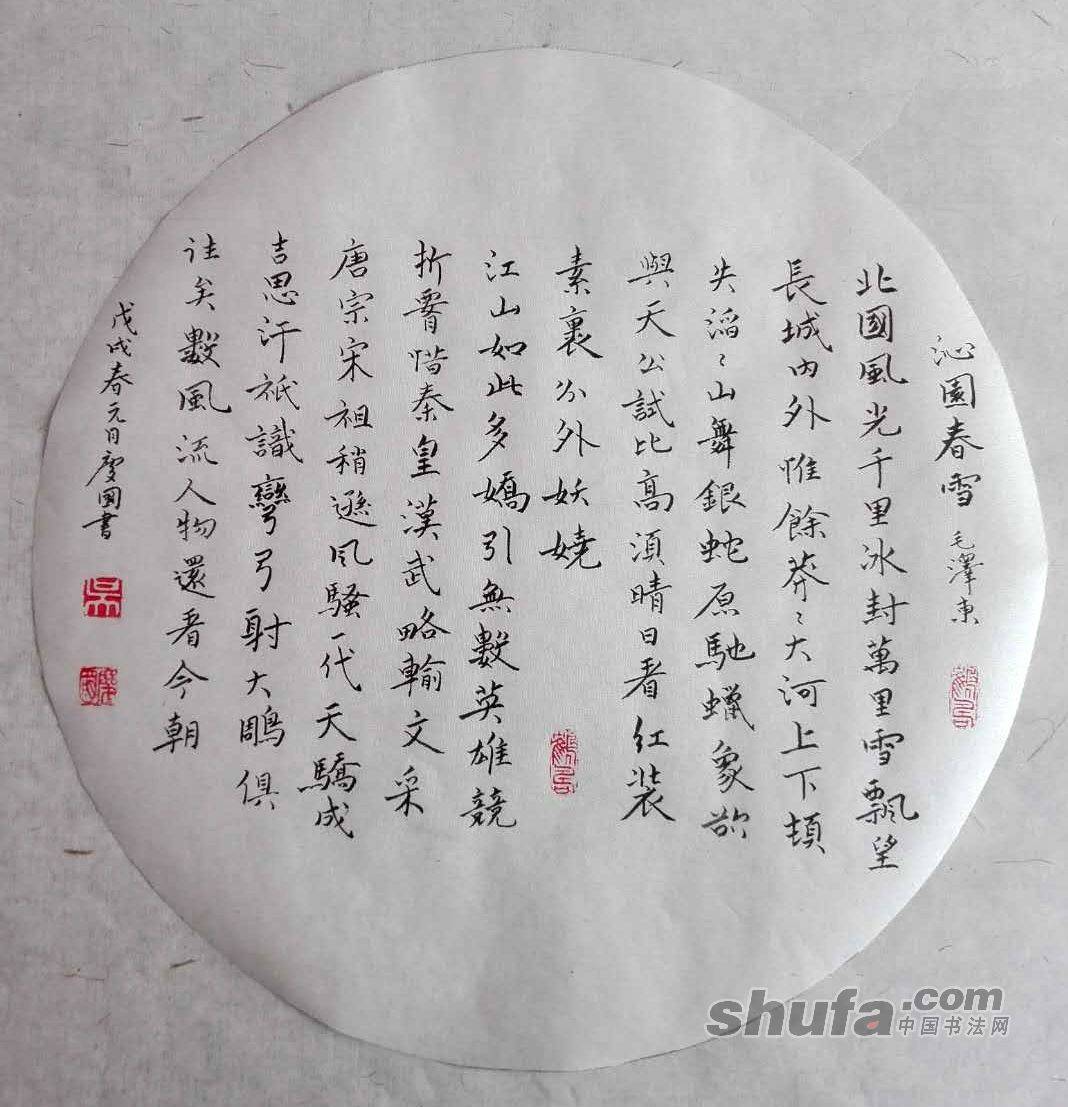 沁園春雪 毛澤東
北國風光千里冰封萬里雪飄望
長城內外惟餘莽〻大河上下頓
失滔〻山舞銀蛇原馳蠟象欲
與天公試比高須晴日看紅裝
素裹分外妖嬈
江山如此多嬌引無數英雄競
折惜秦皇漢武略輸文采
唐宗宋祖稍遜風騷一代天驕成
吉思汗祇識彎弓射大鵰俱
往矣數風流人物還看今朝
戊戌春元月慶國書
吳
shufa.com
中国书法网